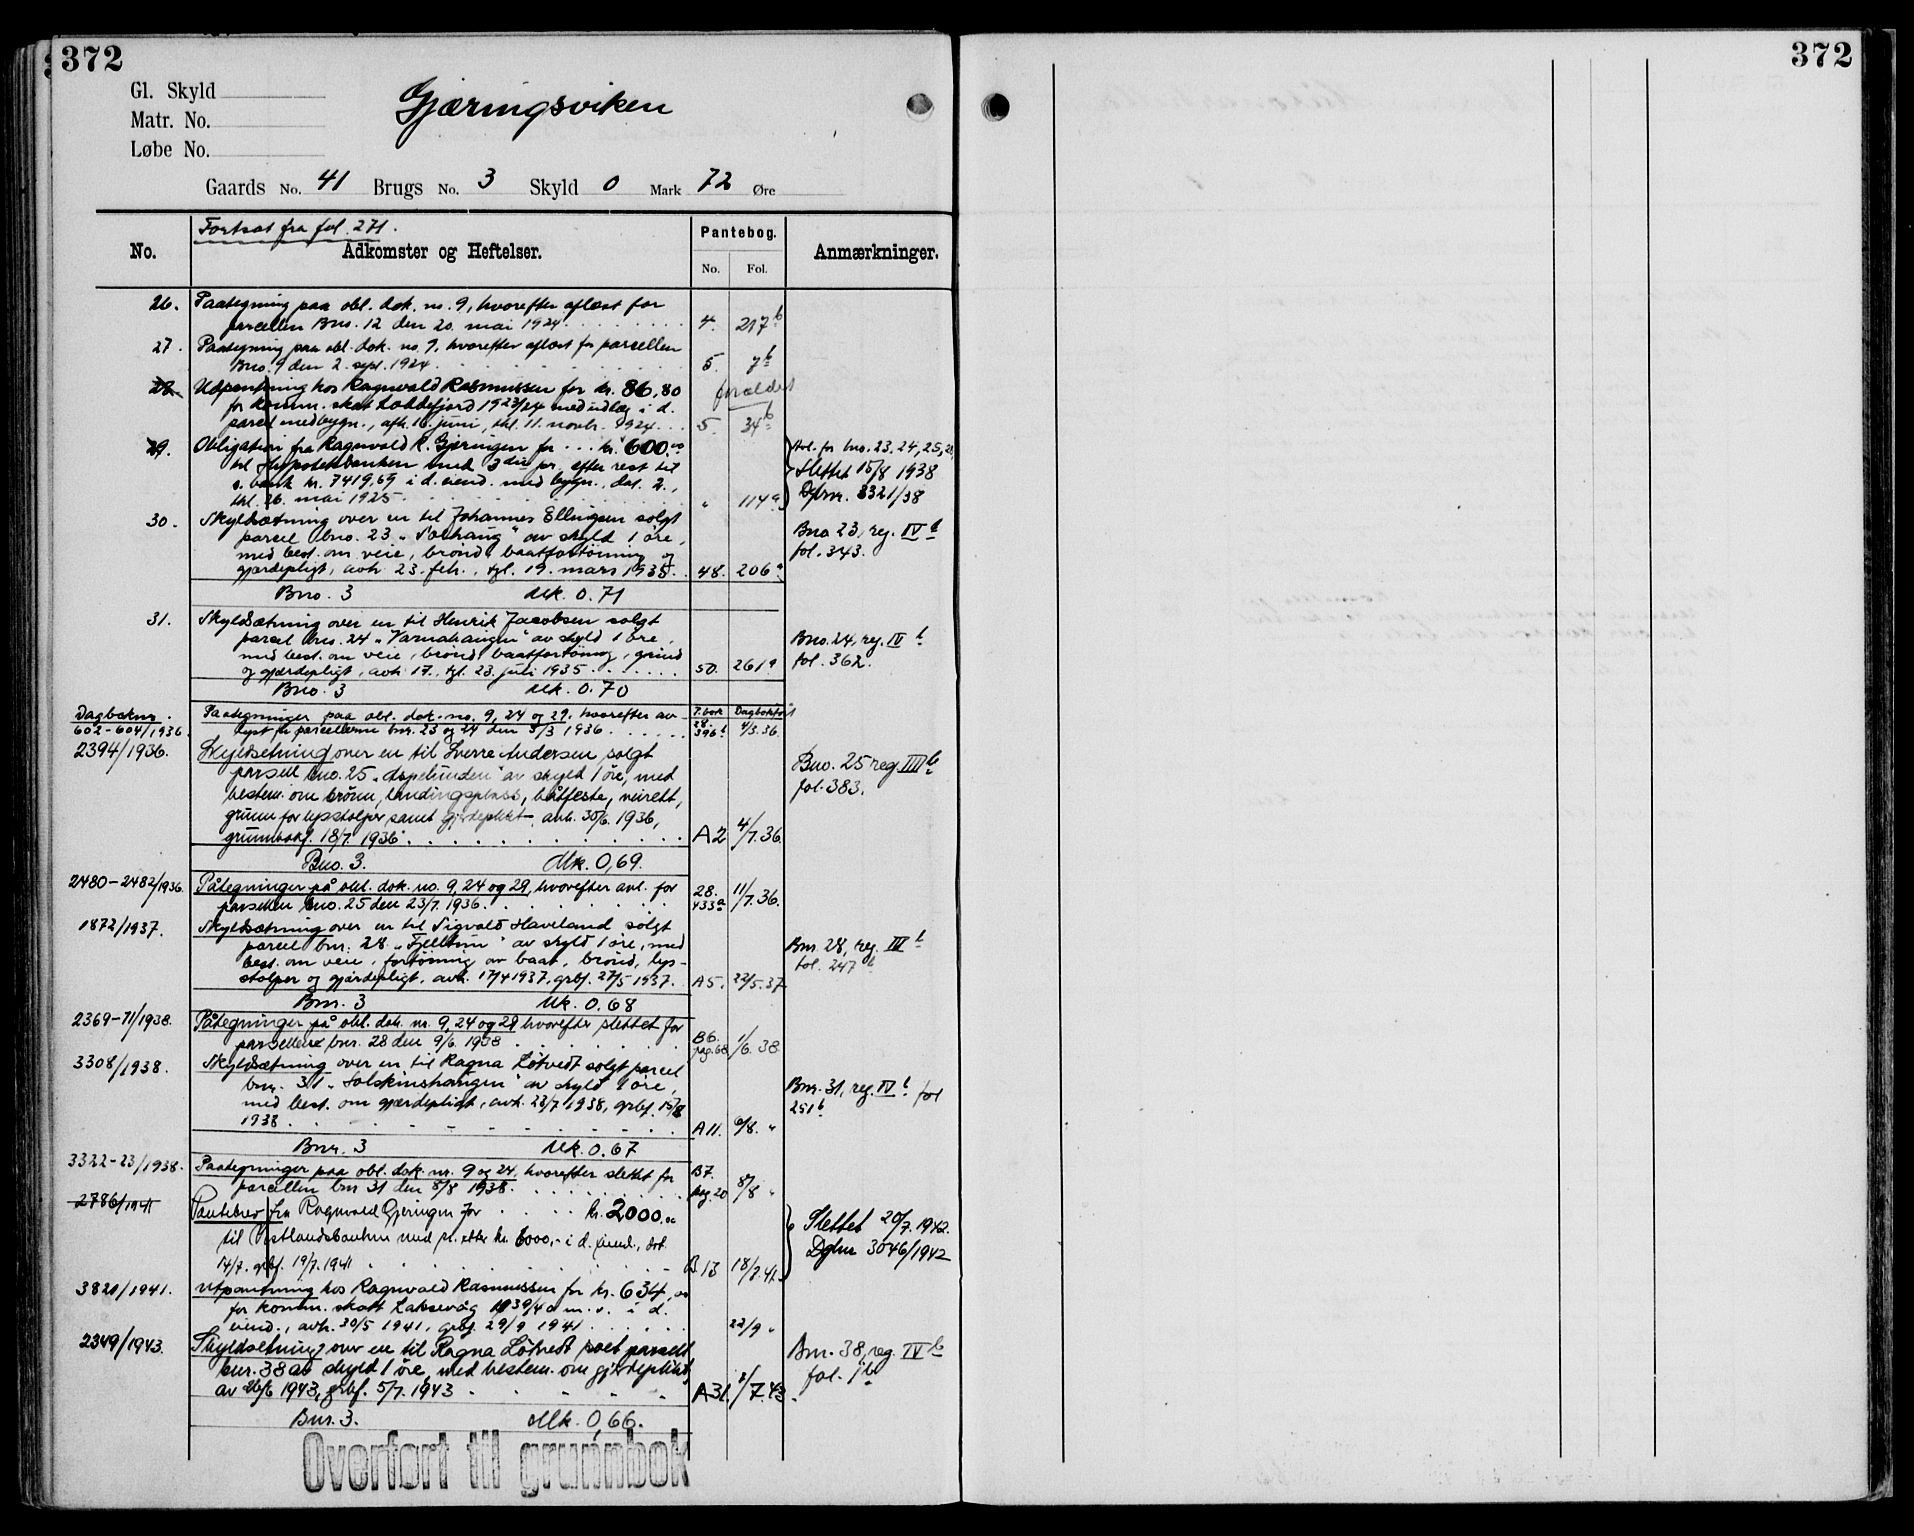 372
372
Gl. Skyld
Matr. No.
Løbe No.
Gjæringsviken
Gaards No. 41 Brugs No. 3 Skyld 0 Mark 72 Øre
Fortsat fra fol. 271.
No. Adkomster og Heftelser. Pantebog. No. Fol. Anmærkninger.
26. Paategning paa obl. dok. no. 9, hvorefter aflæst for
parcellen Bno. 12 den 20. mai 1924. 4. 217 b
27. Paategning paa obl. dok. no. 9, hvorefter aflæst for parcellen
Bno. 9 den 2. sept. 1924. 5. 7 b
28. Udpantning hos Ragnvald Rasmussen for kr. 86,80 forældet
for komm. skat Loddefjord 1923/24 med udlæg i d.
parcel med bygn., afh. 16. juni, thl. 11. novbr. 1924. 5. 34 b
29. Obligation fra Ragnvald R. Gjeringen for kr. 600.00
til Hypotekbanken med 3die pr. efter rest til
s. bank kr. 7419,69 i d. eiend. med bygn., dat. 2.,
thl. 26. mai 1925. " 114 a
Avl. for bno. 23, 24, 25,
Slettet 15/8 1938
Dgbnr. 3321/38
30. Skyldsætning over en til Johannes Ellingsen solgt
parcel bno. 23 " " av skyld 1 øre,
med best. om veie, brønd, baatfortøining og
gjærdepligt, avh. 23. feb., tgl. 19. mars 1935. 48. 206 a
Bno. 23, reg. IV b
fol. 343.
Bno. 3 Mk. 0.71
31. Skyldsætning over en til Henrik Jacobsen solgt
parcel bno. 24 "Varmahaugen" av skyld 1 øre,
med best. om veie, brønd, baatfortøining, grind
og gjærdepligt, avh. 17., tgl. 23. juli 1935. 50. 261 a
Bno. 24, reg. IV b
fol. 362.
Bno. 3 Mk. 0.70
Dagboknr. P.bok Dagbokført
602-604/1936. Paategninger paa obl. dok. no. 9, 24 og 29, hvorefter av-
lyst for parcellerne bnr. 23 og 24 den 5/3 1936. 28. 396 b 4/3.36
2394/1936. Skyldsetning over en til Sverre Andersen solgt
parsell bno. 25 "Ospelunden" av skyld 1 øre, med
bestem. om brønn, landingsplass, båtfeste, veirett,
grunn for lysstolper samt gjerdeplikt, avh. 30/6. 1936,
grunnbokf. 18/7. 1936. A2 4/7.36.
Bno. 25 reg. IIII b
fol. 383.
Bno. 3. Mk. 0,69.
2480-2482/1936. Påtegninger på obl. dok. no. 9, 24 og 29, hvorefter avl. for
parsellen bno. 25 den 23/7. 1936. 28. 433 a 11/7.36.
1872/1937. Skyldsætning over en til Sigvald Haveland solgt
parcel bnr. 28 "Fjelltun" av skyld 1 øre, med
best. om veie, fortøining av baat, brønd, lys-
stolper og gjærdepligt, avh. 17/4 1937, grbf. 27/5 1937. A5. 22/5.37
Bnr. 28, reg. IV b
fol. 247 b
Bnr. 3 Mk. 0.68
2369-71/1938. Påtegninger på obl. dok. nr. 9, 24 og 29 hvorefter slettet for
parsellene bnr. 28 den 9/6. 1938 B6. pag. 68 1/6.38
3308/1938. Skyldsætning over en til Ragna Løtvedt solgt parcel
bnr. 31 "Solskinshaugen" av skyld 1 øre,
med best. om gjærdepligt, avh. 23/7 1938, grbf. 15/8
1938 A11. 6/8. "
Bnr. 31, reg. IV b fol
251 b
Bnr. 3 Mk. 0.67
3322-23/1938. Paategninger paa obl. dok. nr. 9 og 24 hvorefter slettet for
parcellen bnr 31 den 8/8 1938. B7. pag. 20 8/8 "
2786/1941 Pantebrev fra Ragnvald Gjeringen for kr. 2000.00
til Vestlandsbanken med pr. etter kr. 6000,- i d. eiend., dat.
14/7. grbf. 19/7. 1941 B.13 18/7.41.
Slettet 20/7. 1942.
Dgbnr 3046/1942
3821/1941. Utpantning hos Ragnvald Rasmussen for kr. 634,00
for komm. skatt Laksevåg 1939/40 m. v. i d.
eiend., avh. 30/5 1941, grbf. 29/9 1941 22/9 "
2349/1943. Skyldsetning over en til Ragna Løtvedt parsell
bnr. 38 av skyld 1 øre, med bestem. om gjerdeplikt,
av 1943, grbf. 5/7. 1943 A31. 1/7.43.
Bnr. 38, reg. IV b
fol. 1 b
Bnr. 3. Mk. 0,66.
Overført til grunnbok